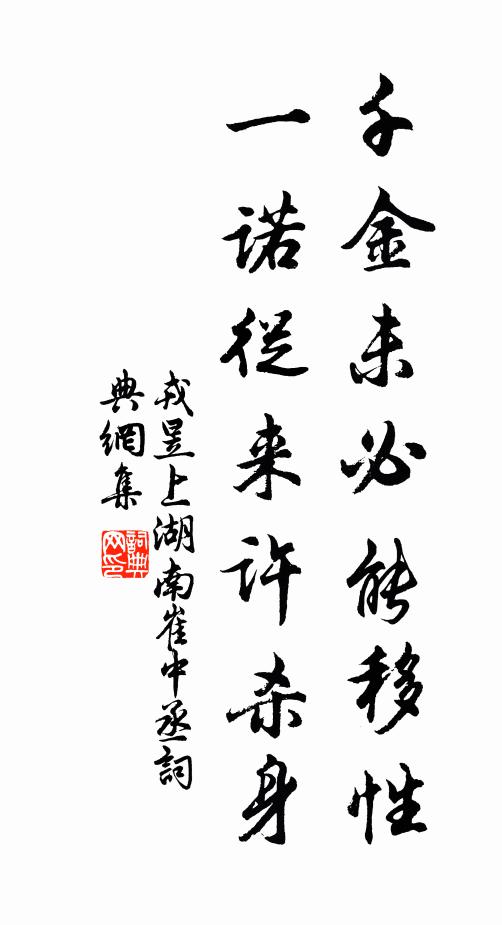 千金未必能移性
一诺從来许杀身
戎昱上湖南崔中丞詞
典網集
詞典
网印